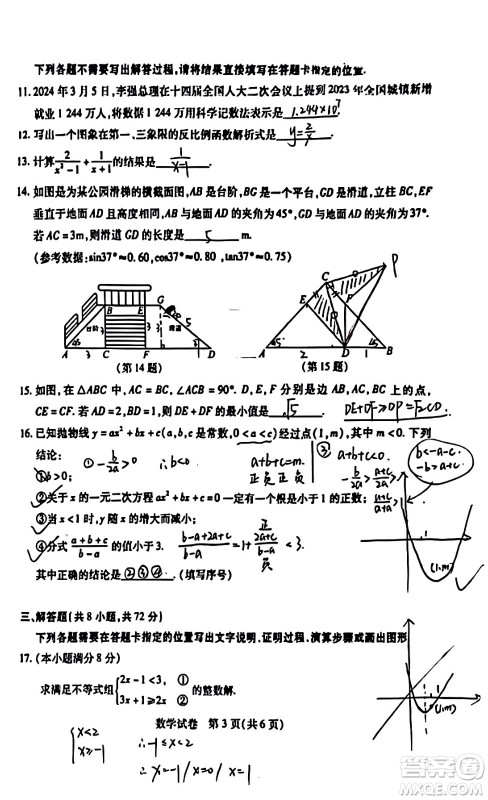 下列各题不需要写出解答过程,请将结果直接填写在答题卡指定的位置.
11. 2024年3月5日,李强总理在十四届全国人大二次会议上提到2023年全国城镇新增
就业1 244万人,将数1 244万用科学记数法表示是 1.244×10⁷
12. 写出一个图象在第一、三象限的反比例函数解析式是 y=2/x
13. 计算 2/(x²-1) + 1/(x+1) 的结果是 1/(x-1)
14. 如图是为某公园滑梯的横截面图,AB是台阶,BE是一个平台,GD是滑道,BC,EF
垂直于地面AD且高度相同,AB与地面AD的夹角为45°,GD与地面AD的夹角为37°.
若AC=3m,则滑道GD的长度是 5 m.
(参考数据:sin37°≈0.60,cos37°≈0.80,tan37°≈0.75)
A C F D B E G 台阶 滑道 45 5
(第14题)
A B C D E F P 45° 45° 2 1
(第15题)
15. 如图,在△ABC中,AC=BC,∠ACB=90°. D,E,F分别是边AB,AC,BC上的点,
CE=CF. 若AD=2,BD=1,则DE+DF的最小值是 √5
DE+DF≥DP=√2CD
16. 已知抛物线y=ax²+bx+c(a,b,c是常数,0<a<c)经过点(1,m),其中m<0. 下列
结论:
-b/2a>0 ∴b<0
a+b+c=m.
正 负 正 负
③
b<-a-c.
-b>a+c
-b/2a>(a+c)/2a>(a+a)/2a=1
①b>0;
②关于x的一元二次方程ax²+bx+c=0一定有一个根是小于1的正数;
③当x<1时,y随x的增大而减小;
④分式(a+b+c)/(b-a)的值小于3.
(b-a+2a+c)/(b-a)=1+(2a+c)/(b-a)<3.
正
负
(1,m)
其中正确的结论是 ②③④ (填写序号)
三、解答题(共8小题,共72分)
下列各题需要在答题卡指定的位置写出文字说明、证明过程、演算步骤或画出图形
17. (本小题满分8分)
求满足不等式组{2x-1<3, ① 3x+1≥2x ②的整数解.
(1,m)
数学试卷 第3页(共6页)
{x<2 x≥-1
∴-1≤x<2
∴x=-1/x=0/x=1
答案圈